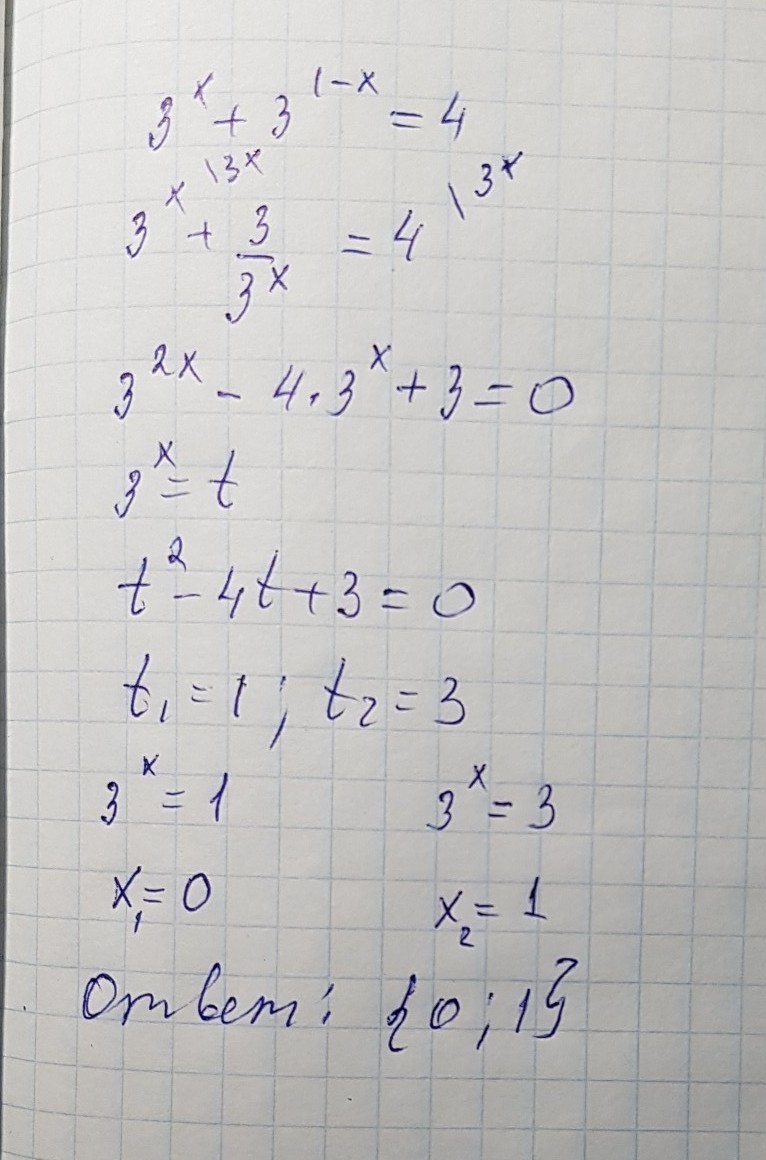 3^x + 3^{1-x} = 4
3^x \3^x + 3/3^x = 4 \3^x
3^{2x} - 4·3^x + 3 = 0
3^x = t
t^2 - 4t + 3 = 0
t_1 = 1; t_2 = 3
3^x = 1 3^x = 3
x_1 = 0 x_2 = 1
Ответ: {0; 1}